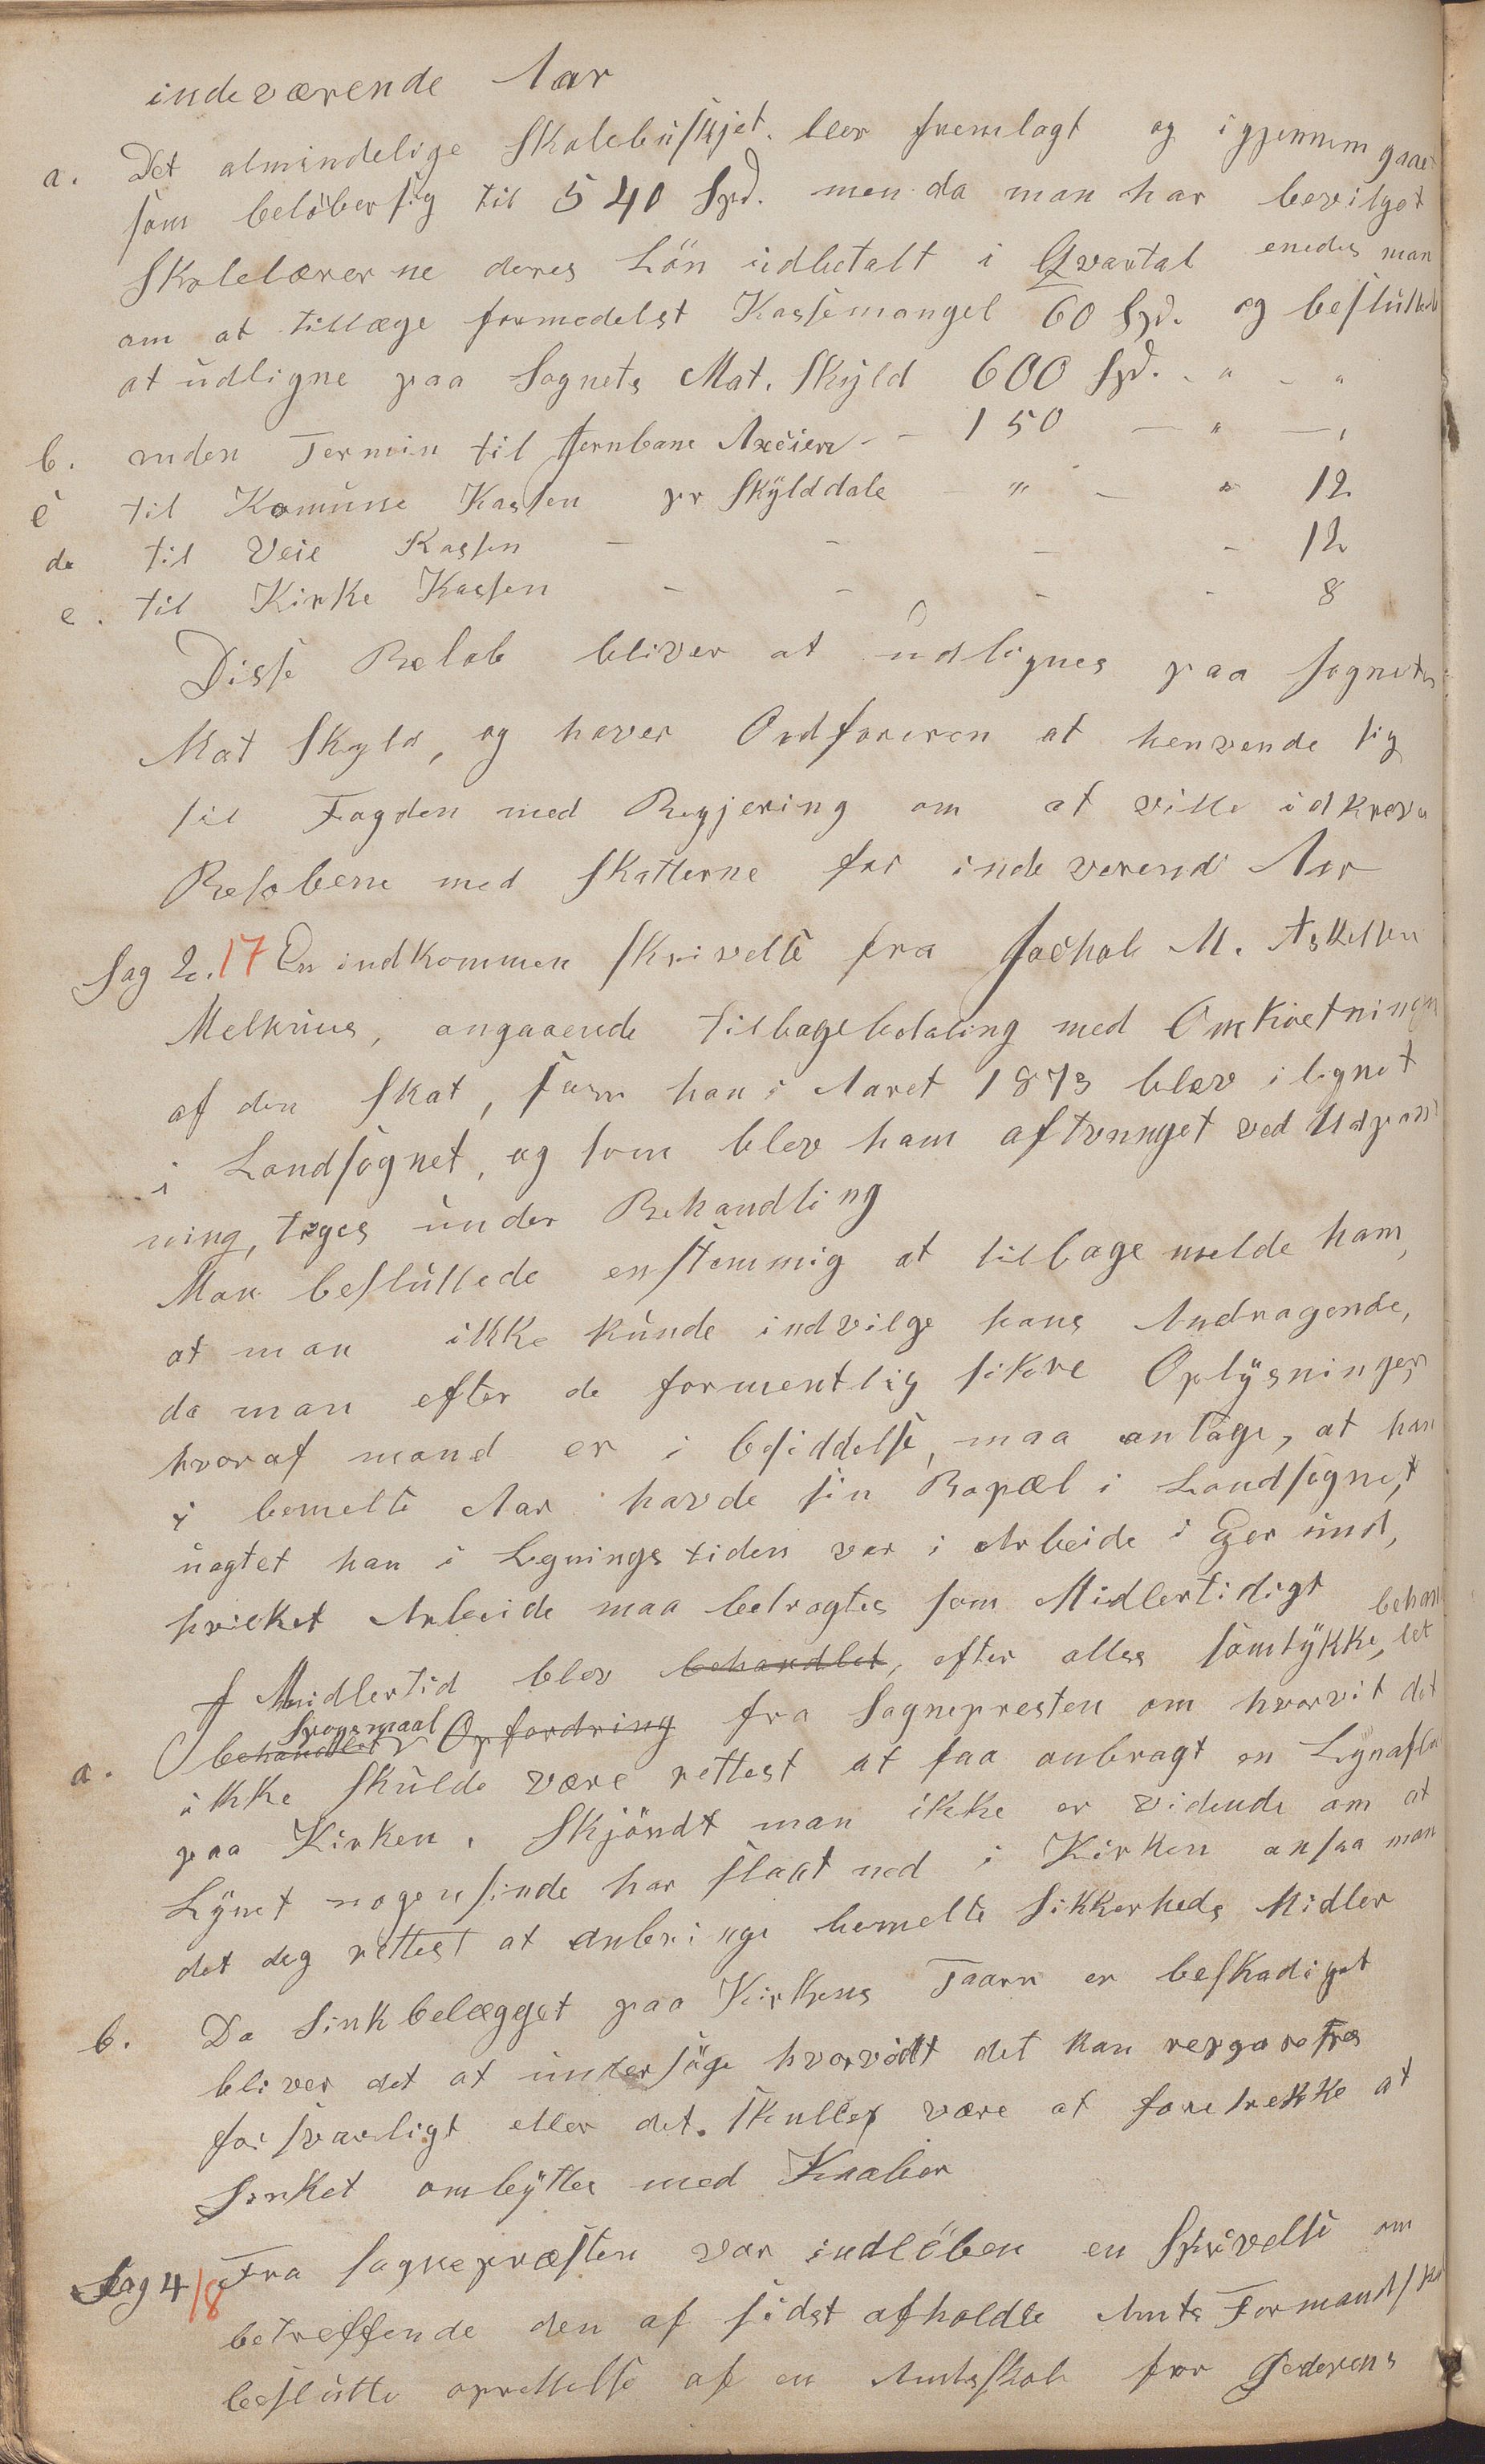 indeværende Aar
a. Det almindelige Skolebüskjet. blev fremlagt og igjennemgaaet
som belöber sig til 540 Spd. men da man har bevilget
Skolelærerne deres Lön üdbetalt i Qvartal enedes man
om at tillæge formedelst Kassemangel 60 Spd. og beslütted
at üdligne paa Sognets Mat. Skÿld 600 Spd. - " - "
b. anden Termin til Jernbane Axcien - - 150 — " —,
c til Komüne Kassen pr Skÿlddale - " — " 12
d. til Veie Kassen - - - - 12
e. til Kirke Kassen - - - - 8
Disse Beløb bliver at üdlignes paa sognets
Mat Skyld, og haver Ordføreren at henvende sig
til Fogden med Begjering om at ville idkreve
Beløbene med Skatterne for indeverend Aar
Sag 2. 17 En indkommen Skrivelse fra Jachob M. Askelsen
Melkrius, angaaende tilbagebetaling med Omkostninger
af den Skat, som han i Aaret 1873 blev ilignet
i Landsognet, og som blev ham aftvunget ved Udpant
ning, toges ünder Behandling
Man beslüttede enstemmig at tilbagemelde ham,
at man ikke künde indvilge hans Andragende,
da man efter de formentlig sikre Oplÿsninger
hvoraf mand er i besiddelse, maa antage, at han
i bemelte Aar havde sin Bopæl i Landsognet
üagtet han i Legningstiden var i Arbeide i Egersünd,
hvilket Arbeide maa betragtes som Midlertidigt
I Midlertid blev behandlet, efter alles samtÿkke, behandlet
a. behandlet Sporsmaal Opfordring fra Sognepresten om hvorvit det
ikke skülde være rettest at faa anbragt en Lÿnafla
paa Kirken. Skjöndt man ikke er vidende om at
Lÿnet nogensinde har slaat ned i Kirken ansaa man
det dog rettest at anbringe bemelte Sikkerheds Midler
b. Da Sinkbelægget paa Kirkens Taarn er beskadiget
bliver det at ündersöge hvorvidt det kan repareres
forsvarligt eller det. skulle være at foretrekke at
Sinket ombÿttes med Kaaber
Sag 4/8 Fra sognepræsten var indlöben en Skrivelse om
betreffende den af sidst afholdte Amts Formandsk
beslütte oprettelse af en Amtsskole for Jederens